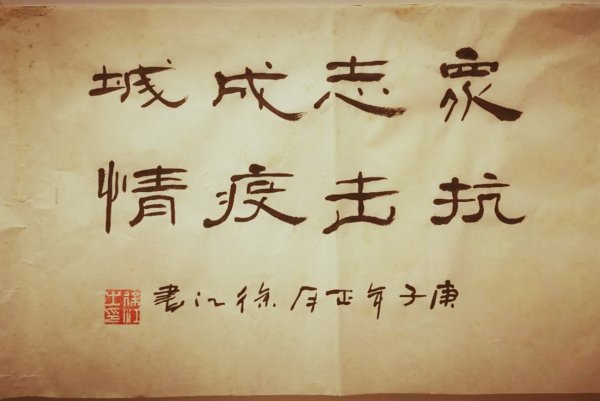 眾志成城
抗击疫情
庚子年正月徐江書
徐江之印